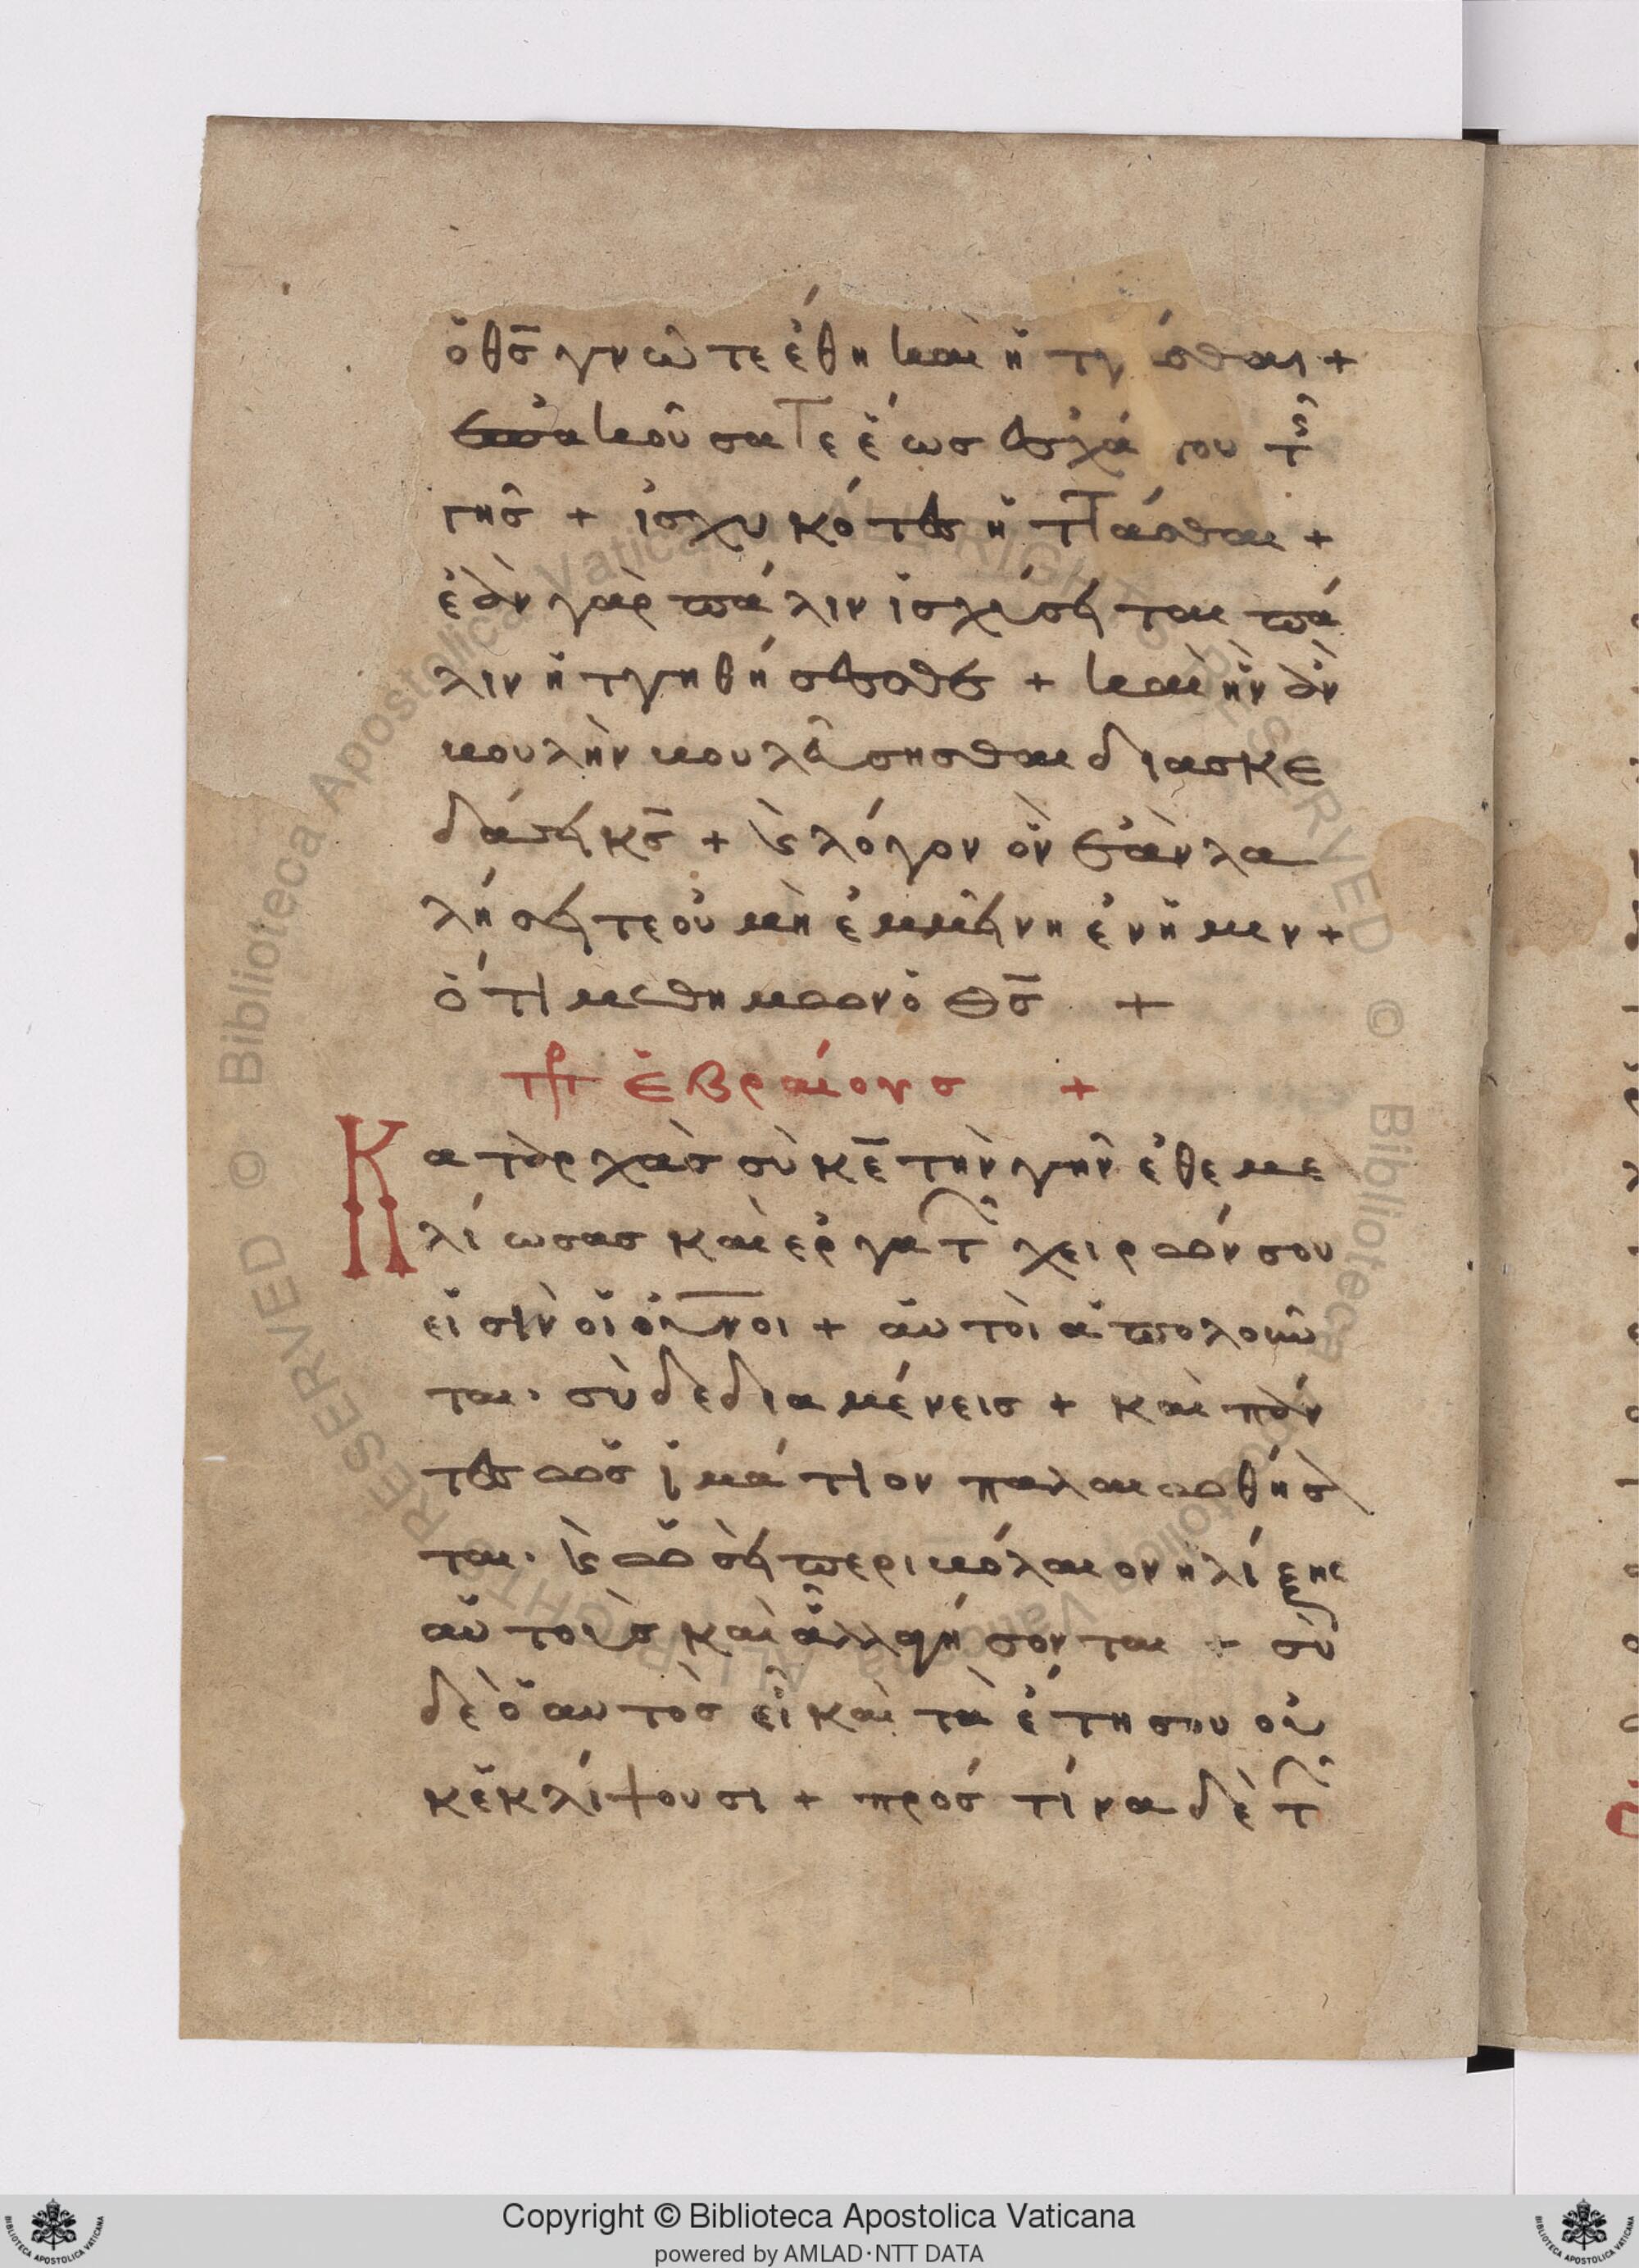 ὁ θς γνῶτε ἔθνη καὶ ἡτγᾶσθαι +
ἐπακοῦσατε ἕως ἐσχάτου τῆς
γῆσ + ἰσχυκότες ἡττᾶσθαι +
ἐὰν γὰρ πάλιν ἰσχύσηται πά
λιν ἡτγηθήσεσθε + καὶ ἣν ἂν
βουλὴν βουλεύσησθαι διασκε
δάσει κς + καὶ λόγον ὃν ἐὰν λα
λήσητε οὐ μὴ ἐμμείνη ἐν ἡμιν +
ὅτι μεθ ημων ὁ θς +
πρ Ἑβραίους +
Κατ ἀρχὰσ σὺ κε τὴν γῆν ἐθεμε
λίωσασ καὶ ἐργα τῶν χειρῶν σου
εἰσὶν οἱ οὐνοι + αὐτοὶ ἀπολοῦν
ται· σὺ δε διαμένεισ + καὶ πάν
τες ὡσ ἱμάτιον παλαιωθήσο
ται· καὶ ὡσεὶ περιβόλαιον ηλίξησ
αὐτοὺσ καὶ ἀλλαγήσονται + σὺ
δὲ ὁ αυτὸσ εἶ καὶ τὰ ἔτη σου οὐ
κ ἐκλίψουσι + πρόσ τίνα δὲ τῶν
Copyright © Biblioteca Apostolica Vaticana
powered by AMLAD·NTT DATA